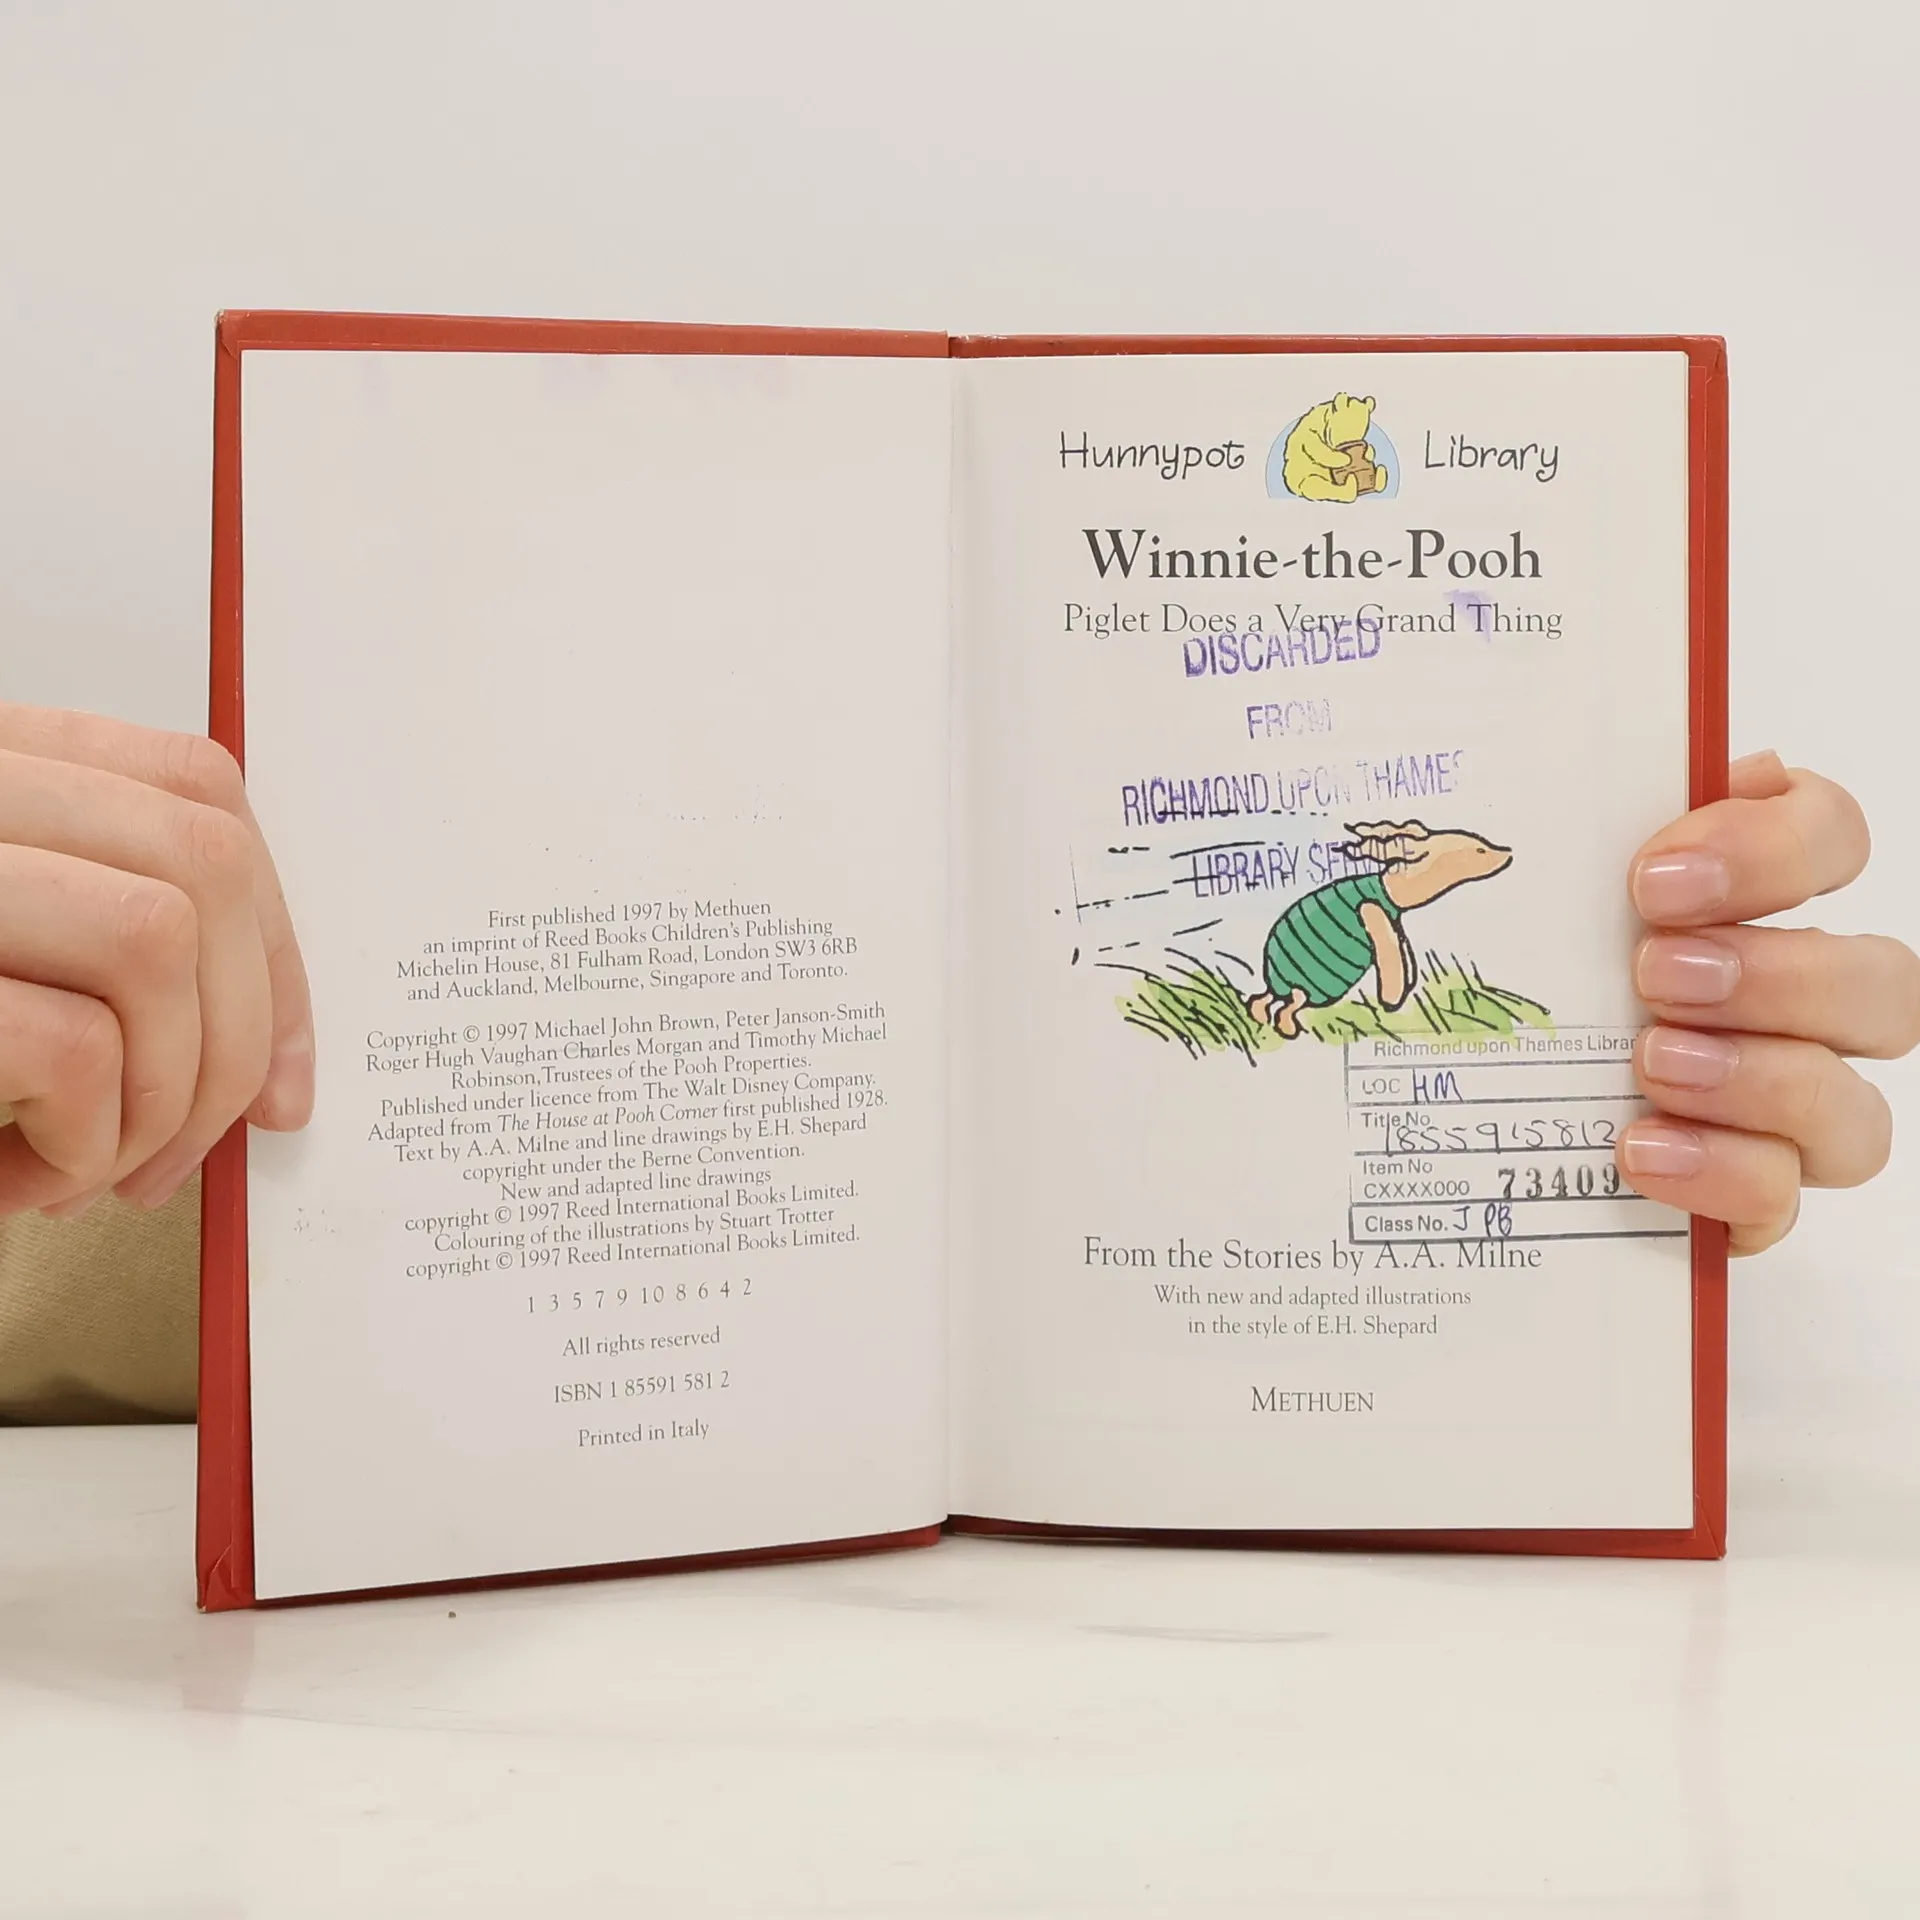 First published 1997 by Methuen
an imprint of Reed Books Children's Publishing
Michelin House, 81 Fulham Road, London SW3 6RB
and Auckland, Melbourne, Singapore and Toronto.
Copyright © 1997 Michael John Brown, Peter Janson-Smith
Roger Hugh Vaughan Charles Morgan and Timothy Michael
Robinson, Trustees of the Pooh Properties.
Published under licence from The Walt Disney Company.
Adapted from The House at Pooh Corner first published 1928.
Text by A.A. Milne and line drawings by E.H. Shepard
copyright under the Berne Convention.
New and adapted line drawings
copyright © 1997 Reed International Books Limited.
Colouring of the illustrations by Stuart Trotter
copyright © 1997 Reed International Books Limited.
1 3 5 7 9 10 8 6 4 2
All rights reserved
ISBN 1 85591 581 2
Printed in Italy
Hunnypot Library
Winnie-the-Pooh
Piglet Does a Very Grand Thing
DISCARDED
FROM
RICHMOND UPON THAMES
LIBRARY SERVICE
Richmond upon Thames Librar
LOC HM
Title No.
1855915812
Item No
CXXXX000 73409
Class No. J PB
From the Stories by A.A. Milne
With new and adapted illustrations
in the style of E.H. Shepard
METHUEN